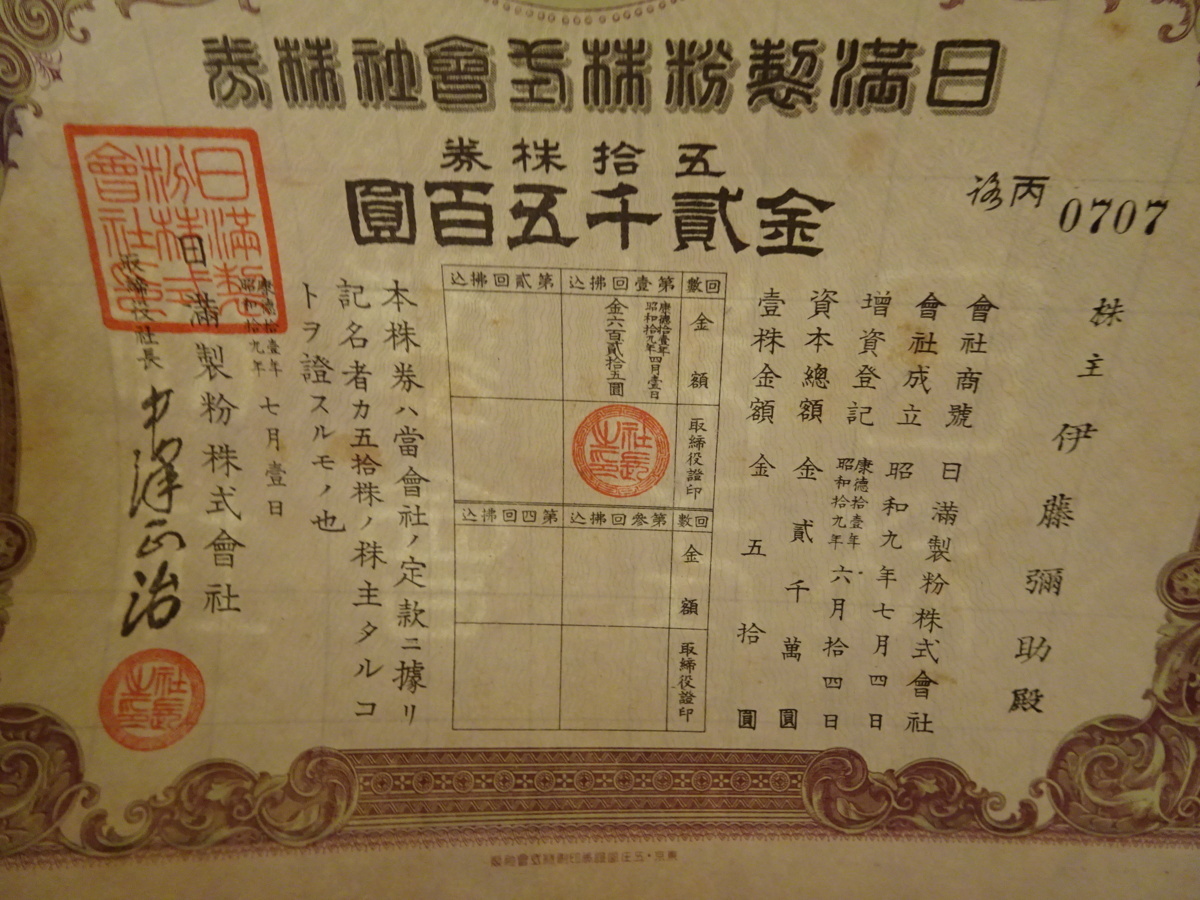 日滿製粉株式會社株券
五拾株券
金貳千五百圓
丙 0707
株主 伊藤彌助殿
會社商號 日滿製粉株式會社
會社成立 昭和九年七月四日
增資登記 康德拾壹年 昭和拾九年 六月拾四日
資本總額 金貳千萬圓
壹株金額 金五拾圓
回數 第壹回拂込 第貳回拂込
金額 康德拾壹年 昭和拾九年 四月壹日 金六百貳拾五圓
取締役證印 社長之印
回數 第參回拂込 第四回拂込
金額
取締役證印
本株券ハ當會社ノ定款ニ據リ
記名者カ五拾株ノ株主タルコ
トヲ證スルモノ也
康德拾壹年 昭和拾九年 七月壹日
日滿製粉株式會社
取締役社長 中澤正治
日滿製粉株式會社之印
社長之印